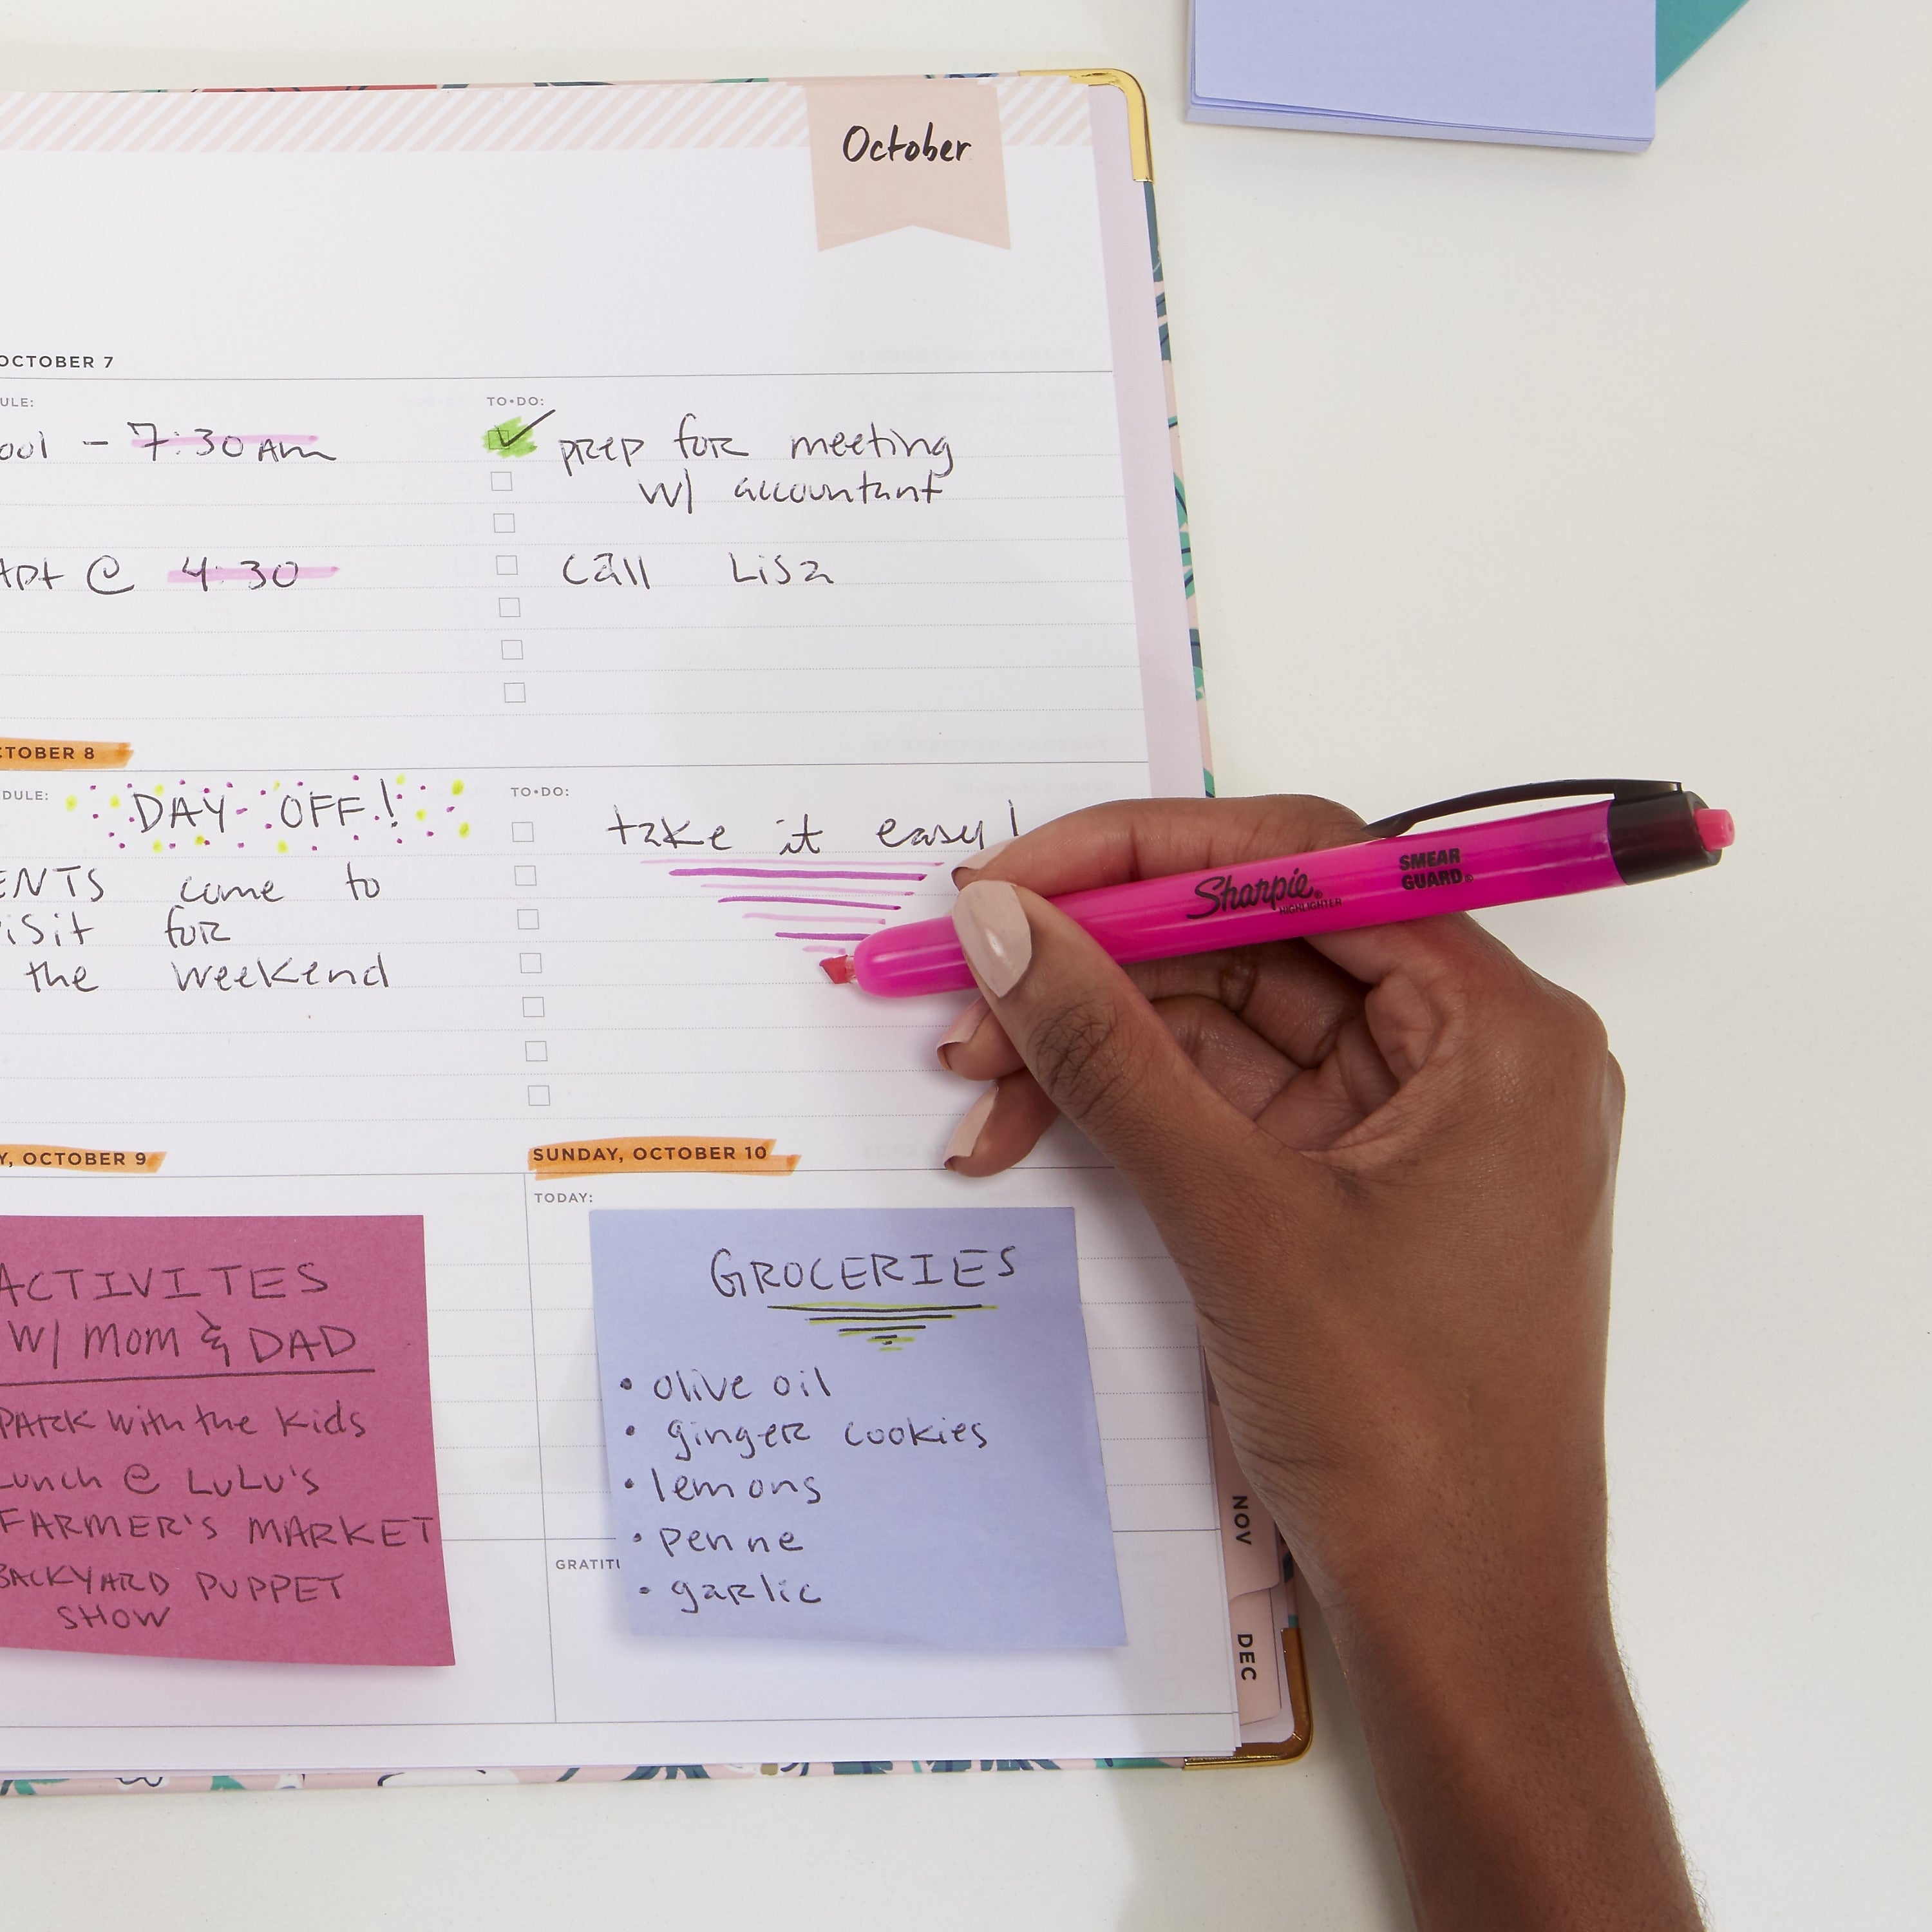 October
OCTOBER 7
TO•DO:
– 7:30 AM
prep for meeting
w/ accountant
Apt @ 4:30
call Lisa
OCTOBER 8
TO•DO:
DAY OFF!
take it easy!
come to
for
the weekend
Sharpie®
HIGHLIGHTER
SMEAR
GUARD®
OCTOBER 9
SUNDAY, OCTOBER 10
TODAY:
ACTIVITES
W/ MOM & DAD
PARK with the kids
Lunch @ LuLu's
FARMER'S MARKET
BACKYARD PUPPET
SHOW
GROCERIES
• olive oil
• ginger cookies
• lemons
• penne
• garlic
NOV
DEC